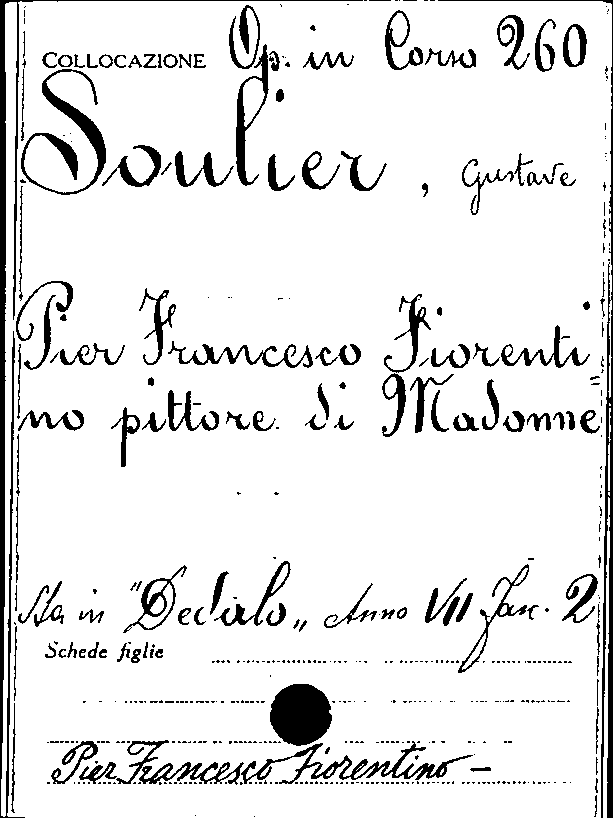 COLLOCAZIONE Op. in Corso 260
Soulier, Gustave
Pier Francesco Fiorenti=
no pittore di Madonne
Sta in "Dedalo„ Anno VII Fasc. 2
Schede figlie
Pier Francesco Fiorentino —